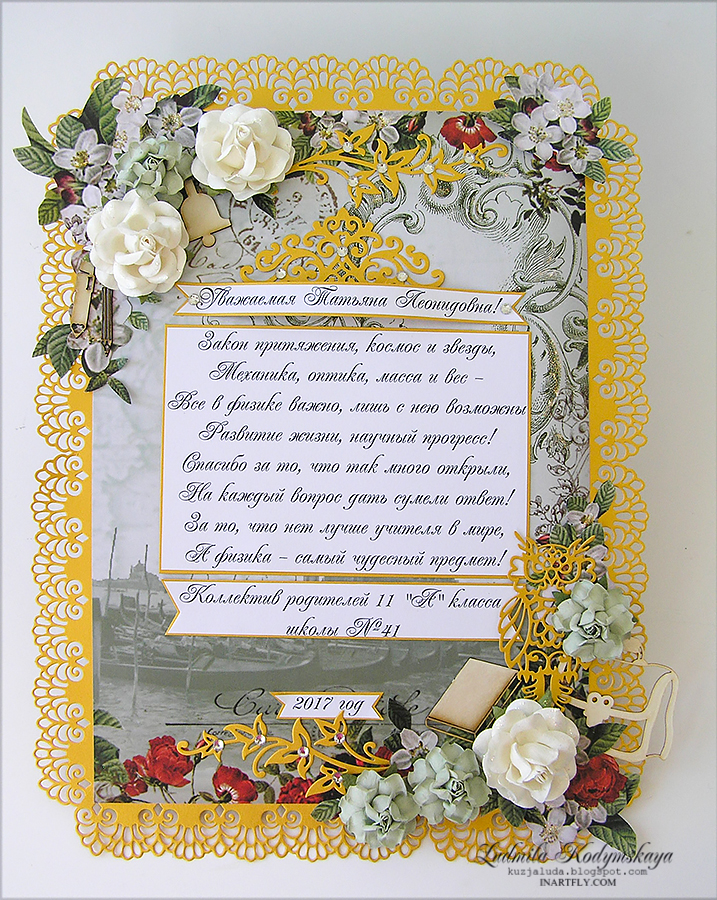 Уважаемая Татьяна Леонидовна!
Закон притяжения, космос и звезды,
Механика, оптика, масса и вес –
Все в физике важно, лишь с нею возможны
Развитие жизни, научный прогресс!
Спасибо за то, что так много открыли,
На каждый вопрос дать сумели ответ!
За то, что нет лучше учителя в мире,
А физика – самый чудесный предмет!
Коллектив родителей 11 "А" класса
школы №41
2017 год
Ludmila Kodymskaya
kuzjaluda.blogspot.com
INARTFLY.COM